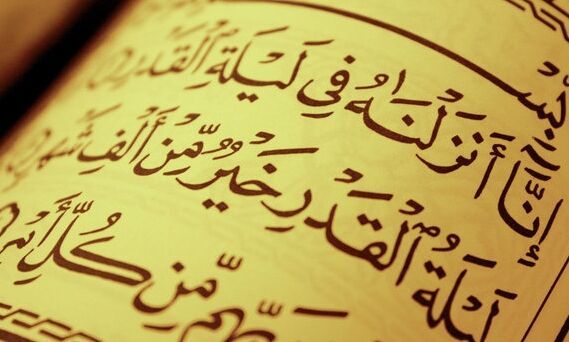 بِسْ
إِنَّآ أَنزَلْنَٰهُ فِي لَيْلَةِ ٱلْقَدْرِ
لَيْلَةُ ٱلْقَدْرِ خَيْرٌ مِّنْ أَلْفِ شَهْرٍ
مِّن كُلِّ أَمْرٍ